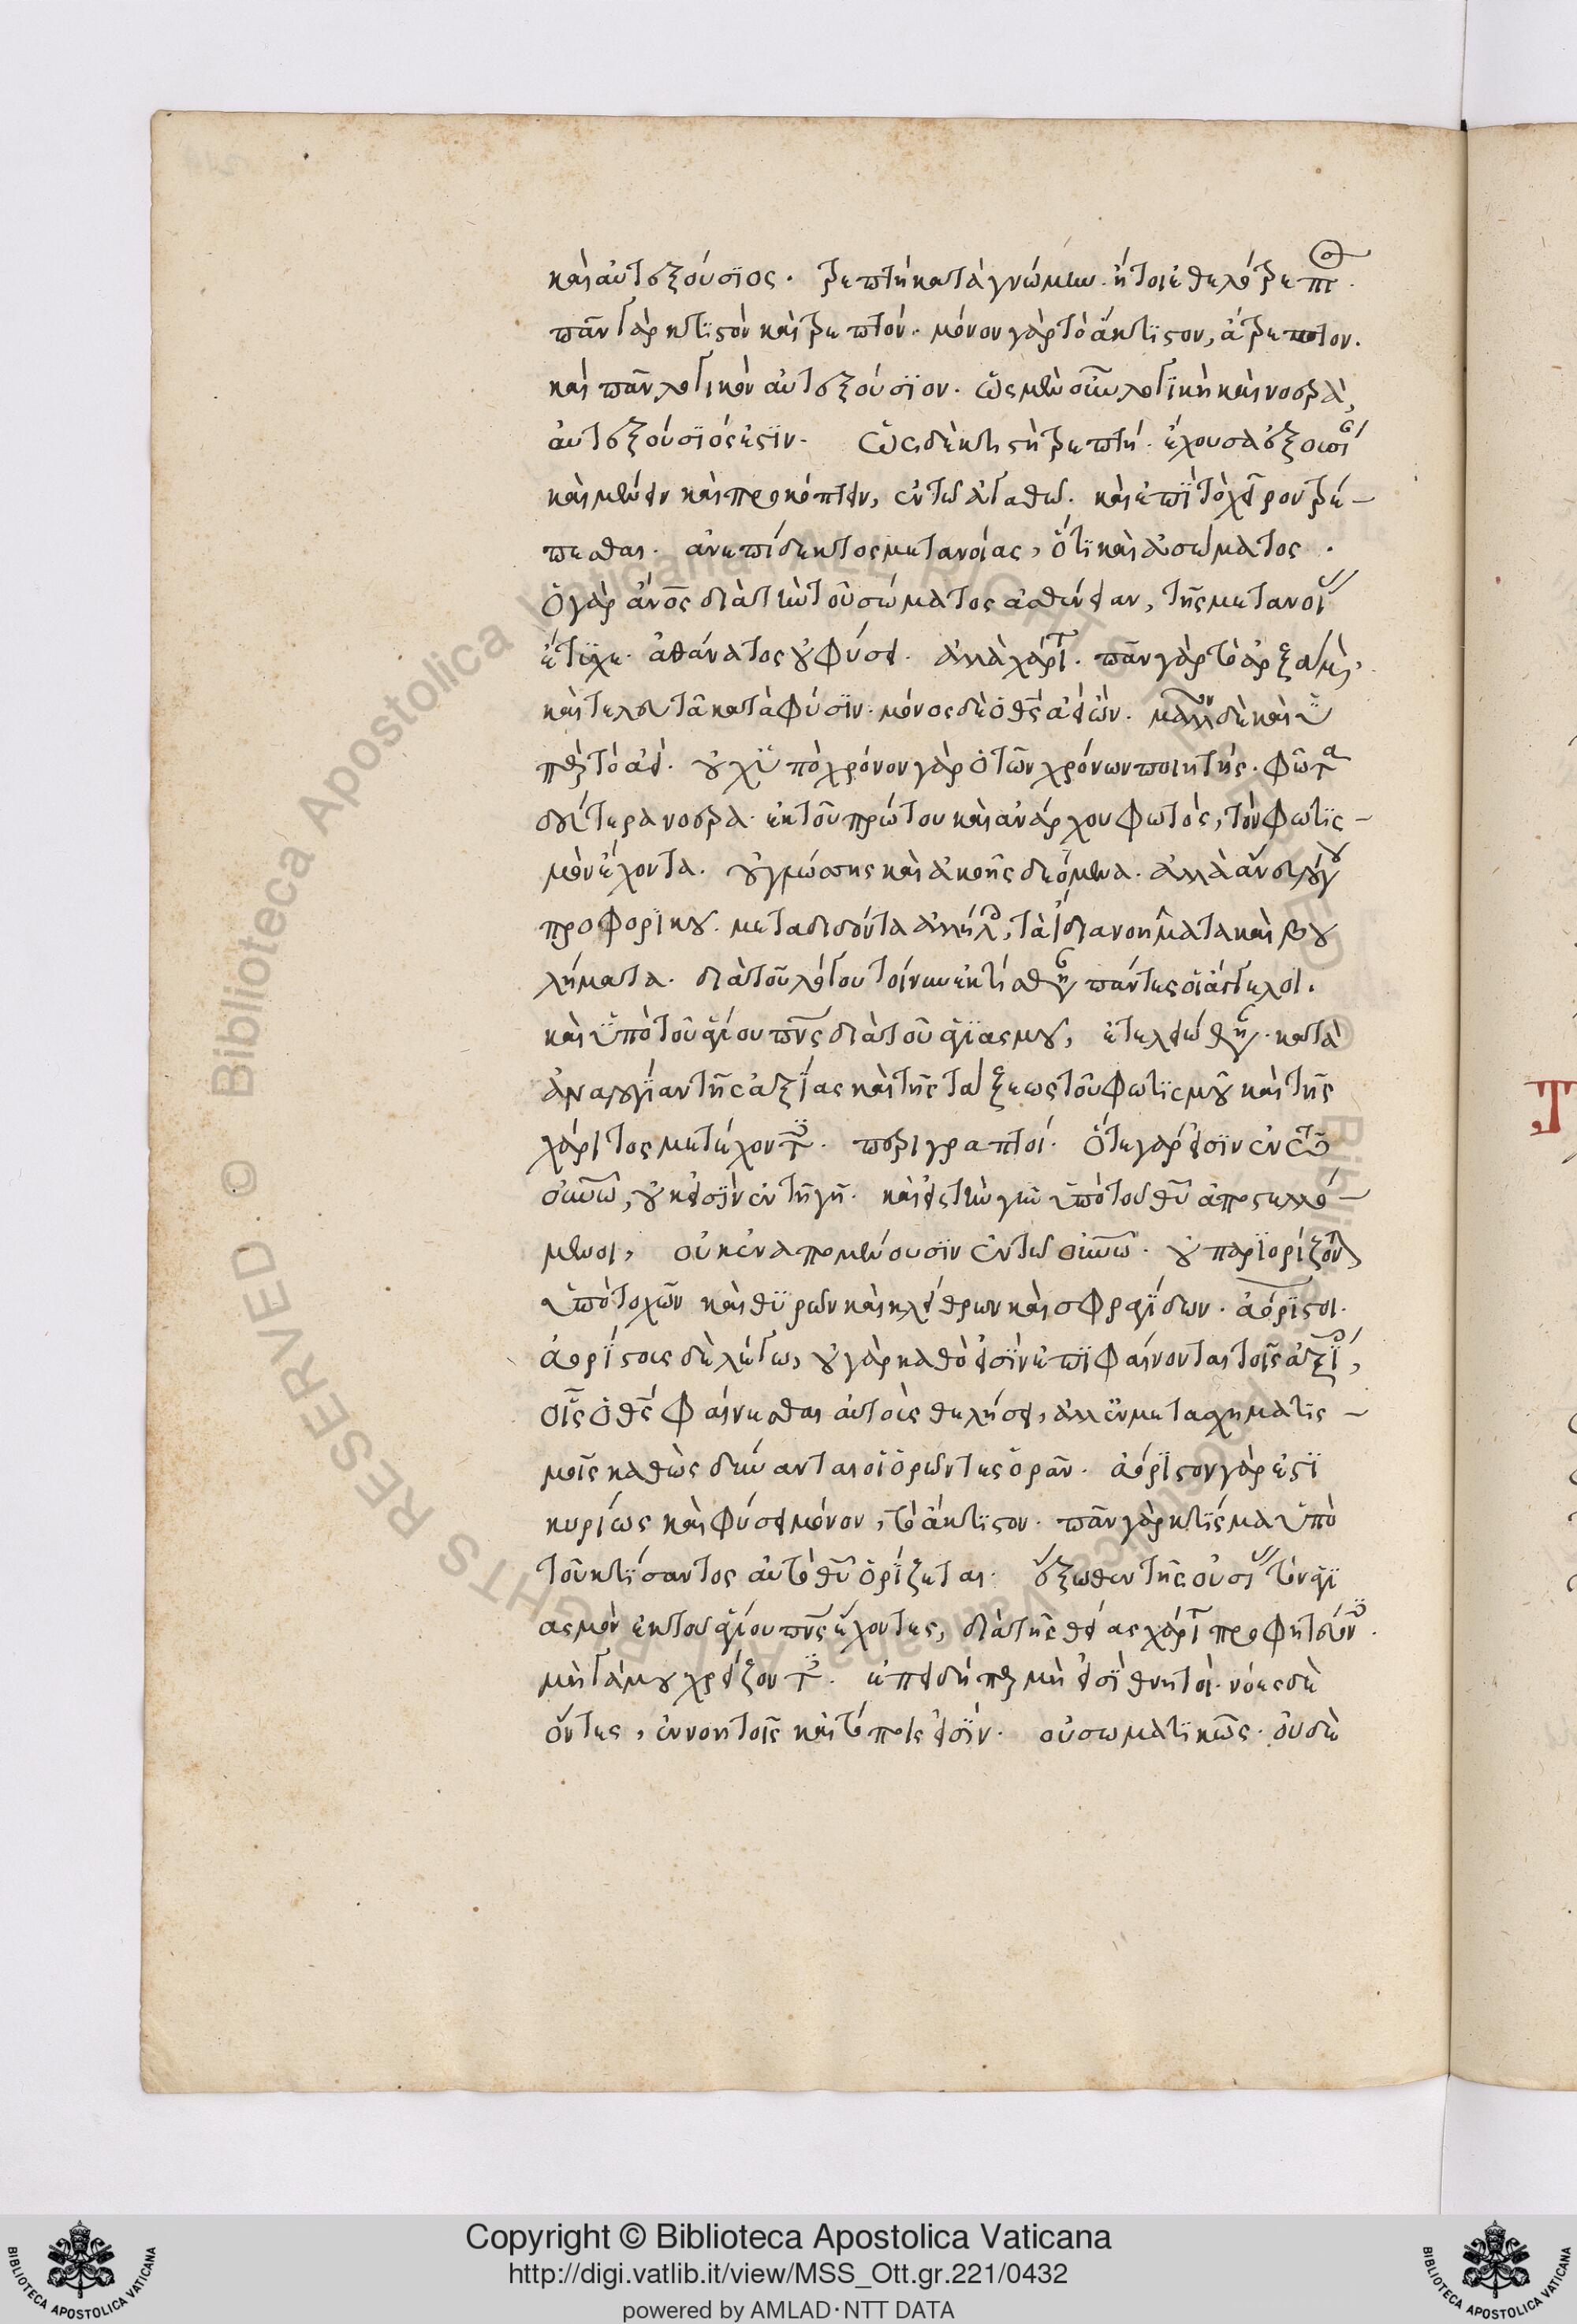 καὶ αὐτεξούσιος. τρεπτὴ κατὰ γνώμην. ἤτοι ἐθελότρεπτ
πᾶν γὰρ κτιστὸν καὶ τρεπτόν. μόνον γὰρ τὸ ἄκτιστον, ἄτρεπτον.
καὶ πᾶν λογικὸν αὐτεξούσιον. ὡς μὲν οὖν λογικὴ καὶ νοερὰ,
αὐτεξούσιός ἐστιν. ὡς δὲ κτιστὴ τρεπτή. ἔχουσα ἐξουσί
καὶ μένειν καὶ προκόπτειν, ἐν τῶ ἀγαθῶ. καὶ ἐπὶ τὸ χεῖρον τρέ-
πεσθαι. ἀνεπίδεκτος μετανοίας, ὅτι καὶ ἀσώματος.
ὁ γὰρ ἄνος διὰ τὴν τοῦ σώματος ἀσθένειαν, τῆς μετανοί
ἔτυχε. ἀθάνατος οὐ φύσει. ἀλλὰ χάριτ. πᾶν γὰρ τὸ ἀρξάμεν,
καὶ τελευτᾶ κατὰ φύσιν. μόνος δὲ ὁ θς ἀεὶ ὤν. μᾶλλον δὲ καὶ ὑ
πὲρ τὸ ἀεί. οὐχ ὑπὸ χρόνον γὰρ ὁ τῶν χρόνων ποιητής. φῶτα
δεύτερα νοερὰ. ἐκ τοῦ πρώτου καὶ ἀνάρχου φωτός, τὸν φωτισ-
μὸν ἔχοντα. οὐ γλώσσης καὶ ἀκοῆς δεόμενα. ἀλλὰ ἄνευ λόγου
προφορικοῦ. μεταδιδόντα ἀλλήλ, τὰ ἴδια νοήματα καὶ βου
λήματα. διὰ τοῦ λόγου τοίνυν ἐκτίσθησαν πάντες οἱ ἄγγελοι.
καὶ ὑπὸ τοῦ ἁγίου πνς διὰ τοῦ ἁγιασμοῦ, ἐτελειώθησαν. κατὰ
ἀναλογίαν τῆς ἀξίας καὶ τῆς τάξεως τοῦ φωτισμοῦ καὶ τῆς
χάριτος μετέχοντ. περιγραπτοί. ὅτε γάρ εἰσιν ἐν τῶ
οὐνῶ, οὐκ εἰσὶν ἐν τῆ γῆ. καὶ εἰς τὴν γῆν ὑπὸ τοῦ θῦ ἀποστελλό-
μενοι, οὐκ ἐναπομένουσιν ἐν τῶ οὐνῶ. οὐ περιορίζοντ
ὑπὸ τοιχῶν καὶ θυρῶν καὶ κλείθρων καὶ σφραγίδων. ἀόριστοι.
ἀορίστους δὲ λέγω, οὐ γὰρ καθὸ εἰσὶν ἐπιφαίνονται τοῖς ἀξί,
οἷς ὁ θς φαίνεσθαι αὐτοὺς θελήση, ἀλλ ἐν μετασχηματισ-
μοῖς καθὼς δύνανται οἱ ὁρῶντες ὁρᾶν. ἀόριστον γάρ ἐστι
κυρίως καὶ φύσει μόνον, τὸ ἄκτιστον. πᾶν γὰρ κτίσμα ὑπὸ
τοῦ κτίσαντος αὐτὸ θῦ ὁρίζεται. ἔξωθεν τῆς οὐσί τὸν ἁγι
ασμὸν ἐκ τοῦ ἁγίου πνς ἔχοντες, διὰ τῆς θείας χάριτ προφητεύοντ.
μὴ γάμου χρείζοντ. ἐπειδήπερ μὴ εἰσὶ θνητοὶ. νόες δὲ
ὄντες, ἐν νοητοῖς καὶ τόποις εἰσίν. οὐ σωματικῶς. οὐδὲ